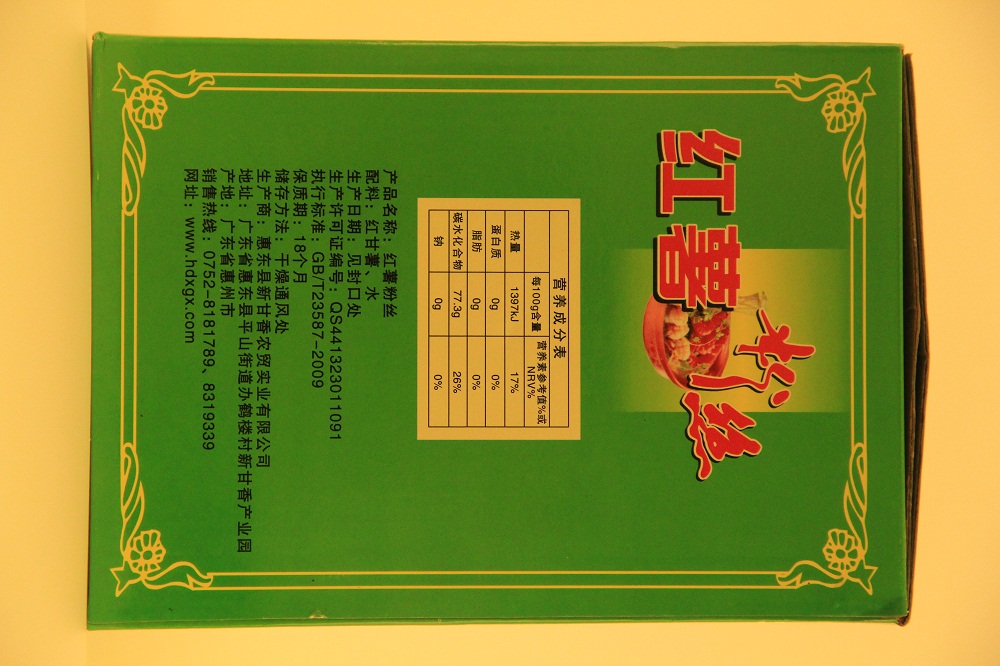 红薯粉丝
营养成分表
每100g含量 营养素参考值%或NRV%
热量 1397kJ 17%
蛋白质 0g 0%
脂肪 0g 0%
碳水化合物 77.3g 26%
钠 0g 0%
产品名称：红薯粉丝
配料：红甘薯、水
生产日期：见封口处
生产许可证编号：QS441323011091
执行标准：GB/T23587-2009
保质期：18个月
储存方法：干燥通风处
生产商：惠东县新甘香农贸实业有限公司
地址：广东省惠东县平山街道办鹤楼村新甘香产业园
产地：广东省惠州市
销售热线：0752-8181789、8319339
网址：www.hdxgx.com